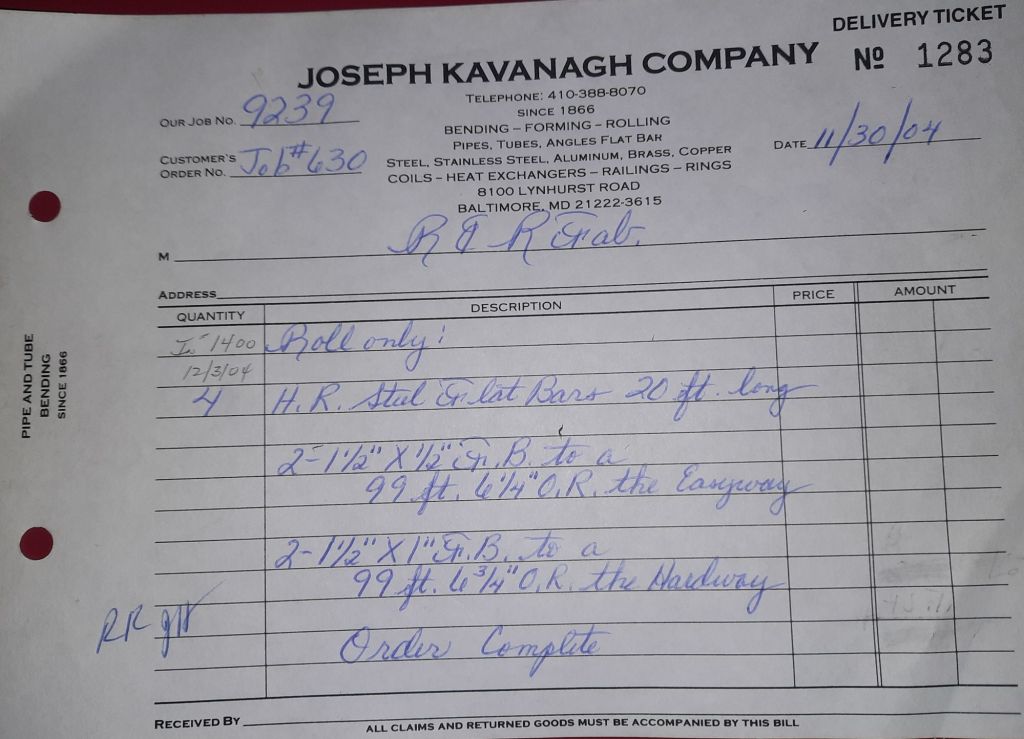 DELIVERY TICKET
JOSEPH KAVANAGH COMPANY
Nº 1283
TELEPHONE: 410-388-8070
SINCE 1866
BENDING – FORMING – ROLLING
PIPES, TUBES, ANGLES FLAT BAR
STEEL, STAINLESS STEEL, ALUMINUM, BRASS, COPPER
COILS – HEAT EXCHANGERS – RAILINGS – RINGS
8100 LYNHURST ROAD
BALTIMORE, MD 21222-3615
OUR JOB NO. 9239
CUSTOMER'S
ORDER NO. Job # 630
DATE 11/30/04
M R & R Fab.
ADDRESS
QUANTITY DESCRIPTION PRICE AMOUNT
1400 Roll only:
12/3/04
4 H.R. Steel Flat Bars 20 ft. long
2-1 1/2" X 1/2" F.B. to a
99 ft. 6 1/4" O.R. the Easyway
2-1 1/2" X 1" F.B. to a
99 ft. 6 3/4" O.R. the Hardway
RR
Order Complete
RECEIVED BY
ALL CLAIMS AND RETURNED GOODS MUST BE ACCOMPANIED BY THIS BILL
PIPE AND TUBE
BENDING
SINCE 1866